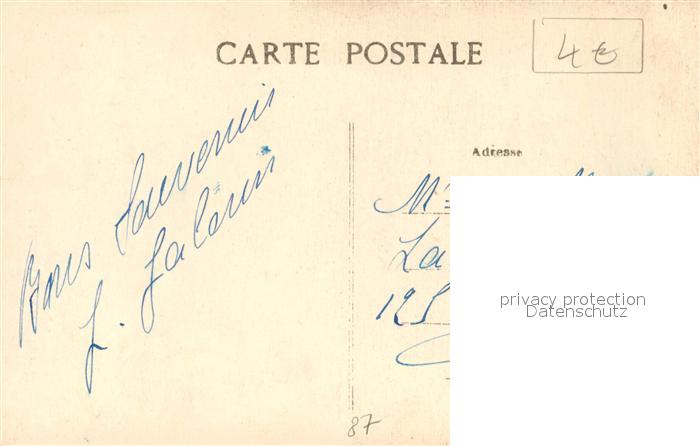 CARTE POSTALE
4€
Bons Souvenirs
Adresse
La
125
privacy protection
Datenschutz
87